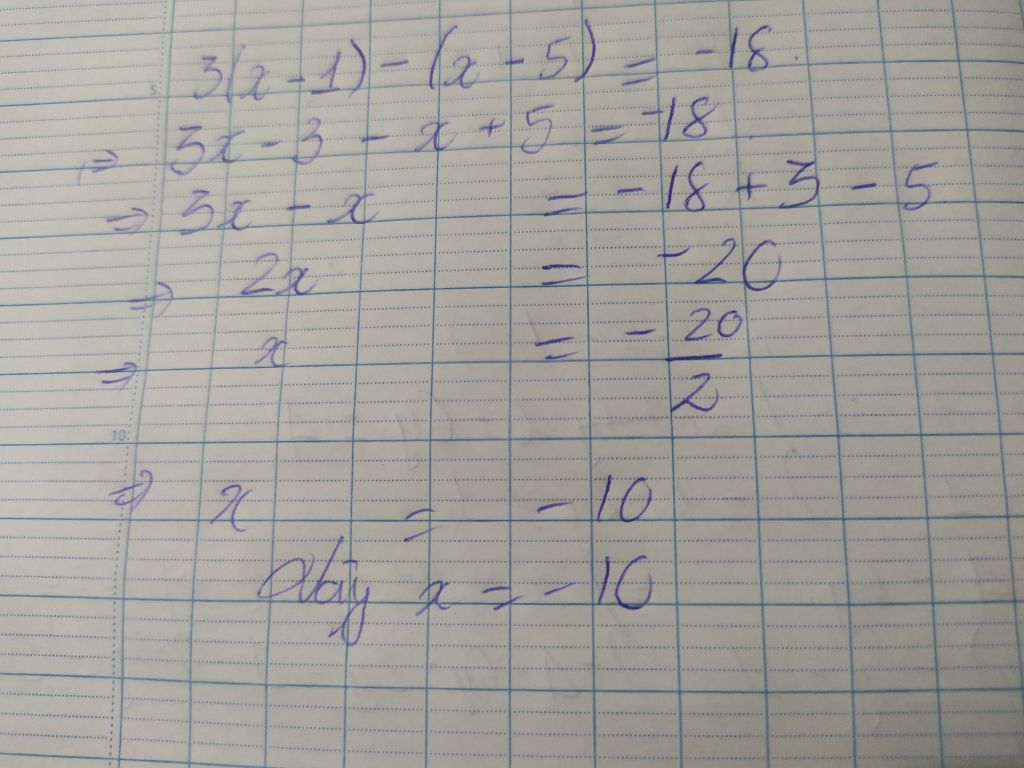 3(x - 1) - (x - 5) = -18.
⇒ 3x - 3 - x + 5 = -18
⇒ 3x - x = -18 + 3 - 5
⇒ 2x = -20
⇒ x = - 20/2
⇒ x = - 10
Vậy x = - 10